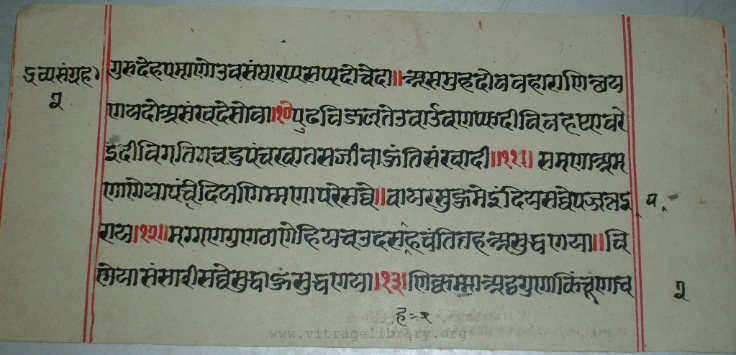 द्रव्यसंग्रह।
२
गुरुदेहपमाणोउवसंघारप्पसप्पदोचेदा॥असमुहदोववहारणिछय
णयदोअसंखदेसोवा॥१०॥पुढविजलतेउवाउवणप्फदीविवहथावरे
इंदीविगतिगचदुपंचरकातसजीवाहुंतिसंखादी॥११॥समणाअम
णाणेयापंचिंदियणिम्मणापरेसव्वे॥वायरसुहमेइंदियसव्वेपजत्तइ
राय॥१२॥मग्गणगुणठाणेहियचउदसहवंतितहअसुद्धणया॥वि
णेयासंसारीसव्वेसुद्धाहुंसुद्धणया॥१३॥णिक्कम्माअट्ठगुणाकिंचूणाच
२
www.vitragelibrary.org